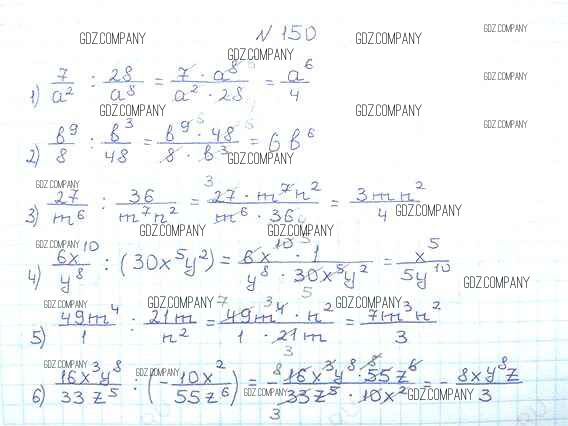 № 150
GDZ.COMPANY GDZ.COMPANY GDZ.COMPANY
GDZ.COMPANY
1) 7/a² : 28/a⁸ = 7 · a⁸/a² · 28 = a⁶/4
GDZ.COMPANY
GDZ.COMPANY GDZ.COMPANY
GDZ.COMPANY
2) b⁹/8 : b³/48 = b⁹ · 48/8 · b³ = 6b⁶
GDZ.COMPANY
GDZ.COMPANY GDZ.COMPANY
3) 27/m⁶ : 36/m⁷n² = 27 · m⁷n²/m⁶ · 36 = 3mn²/4
GDZ.COMPANY
GDZ.COMPANY GDZ.COMPANY GDZ.COMPANY
4) 6x¹⁰/y⁸ : (30x⁵y²) = 6x¹⁰ · 1/y⁸ · 30x⁵y² = x⁵/5y¹⁰
GDZ.COMPANY
GDZ.COMPANY GDZ.COMPANY GDZ.COMPANY
5) 49m⁴/1 : 21m/n² = 49m⁴ · n²/1 · 21m = 7m³n²/3
GDZ.COMPANY GDZ.COMPANY
6) 16x³y⁸/33z⁵ : (-10x²/55z⁶) = -16x³y⁸ · 55z⁶/33z⁵ · 10x² = -8xy⁸z/3
GDZ.COMPANY GDZ.COMPANY